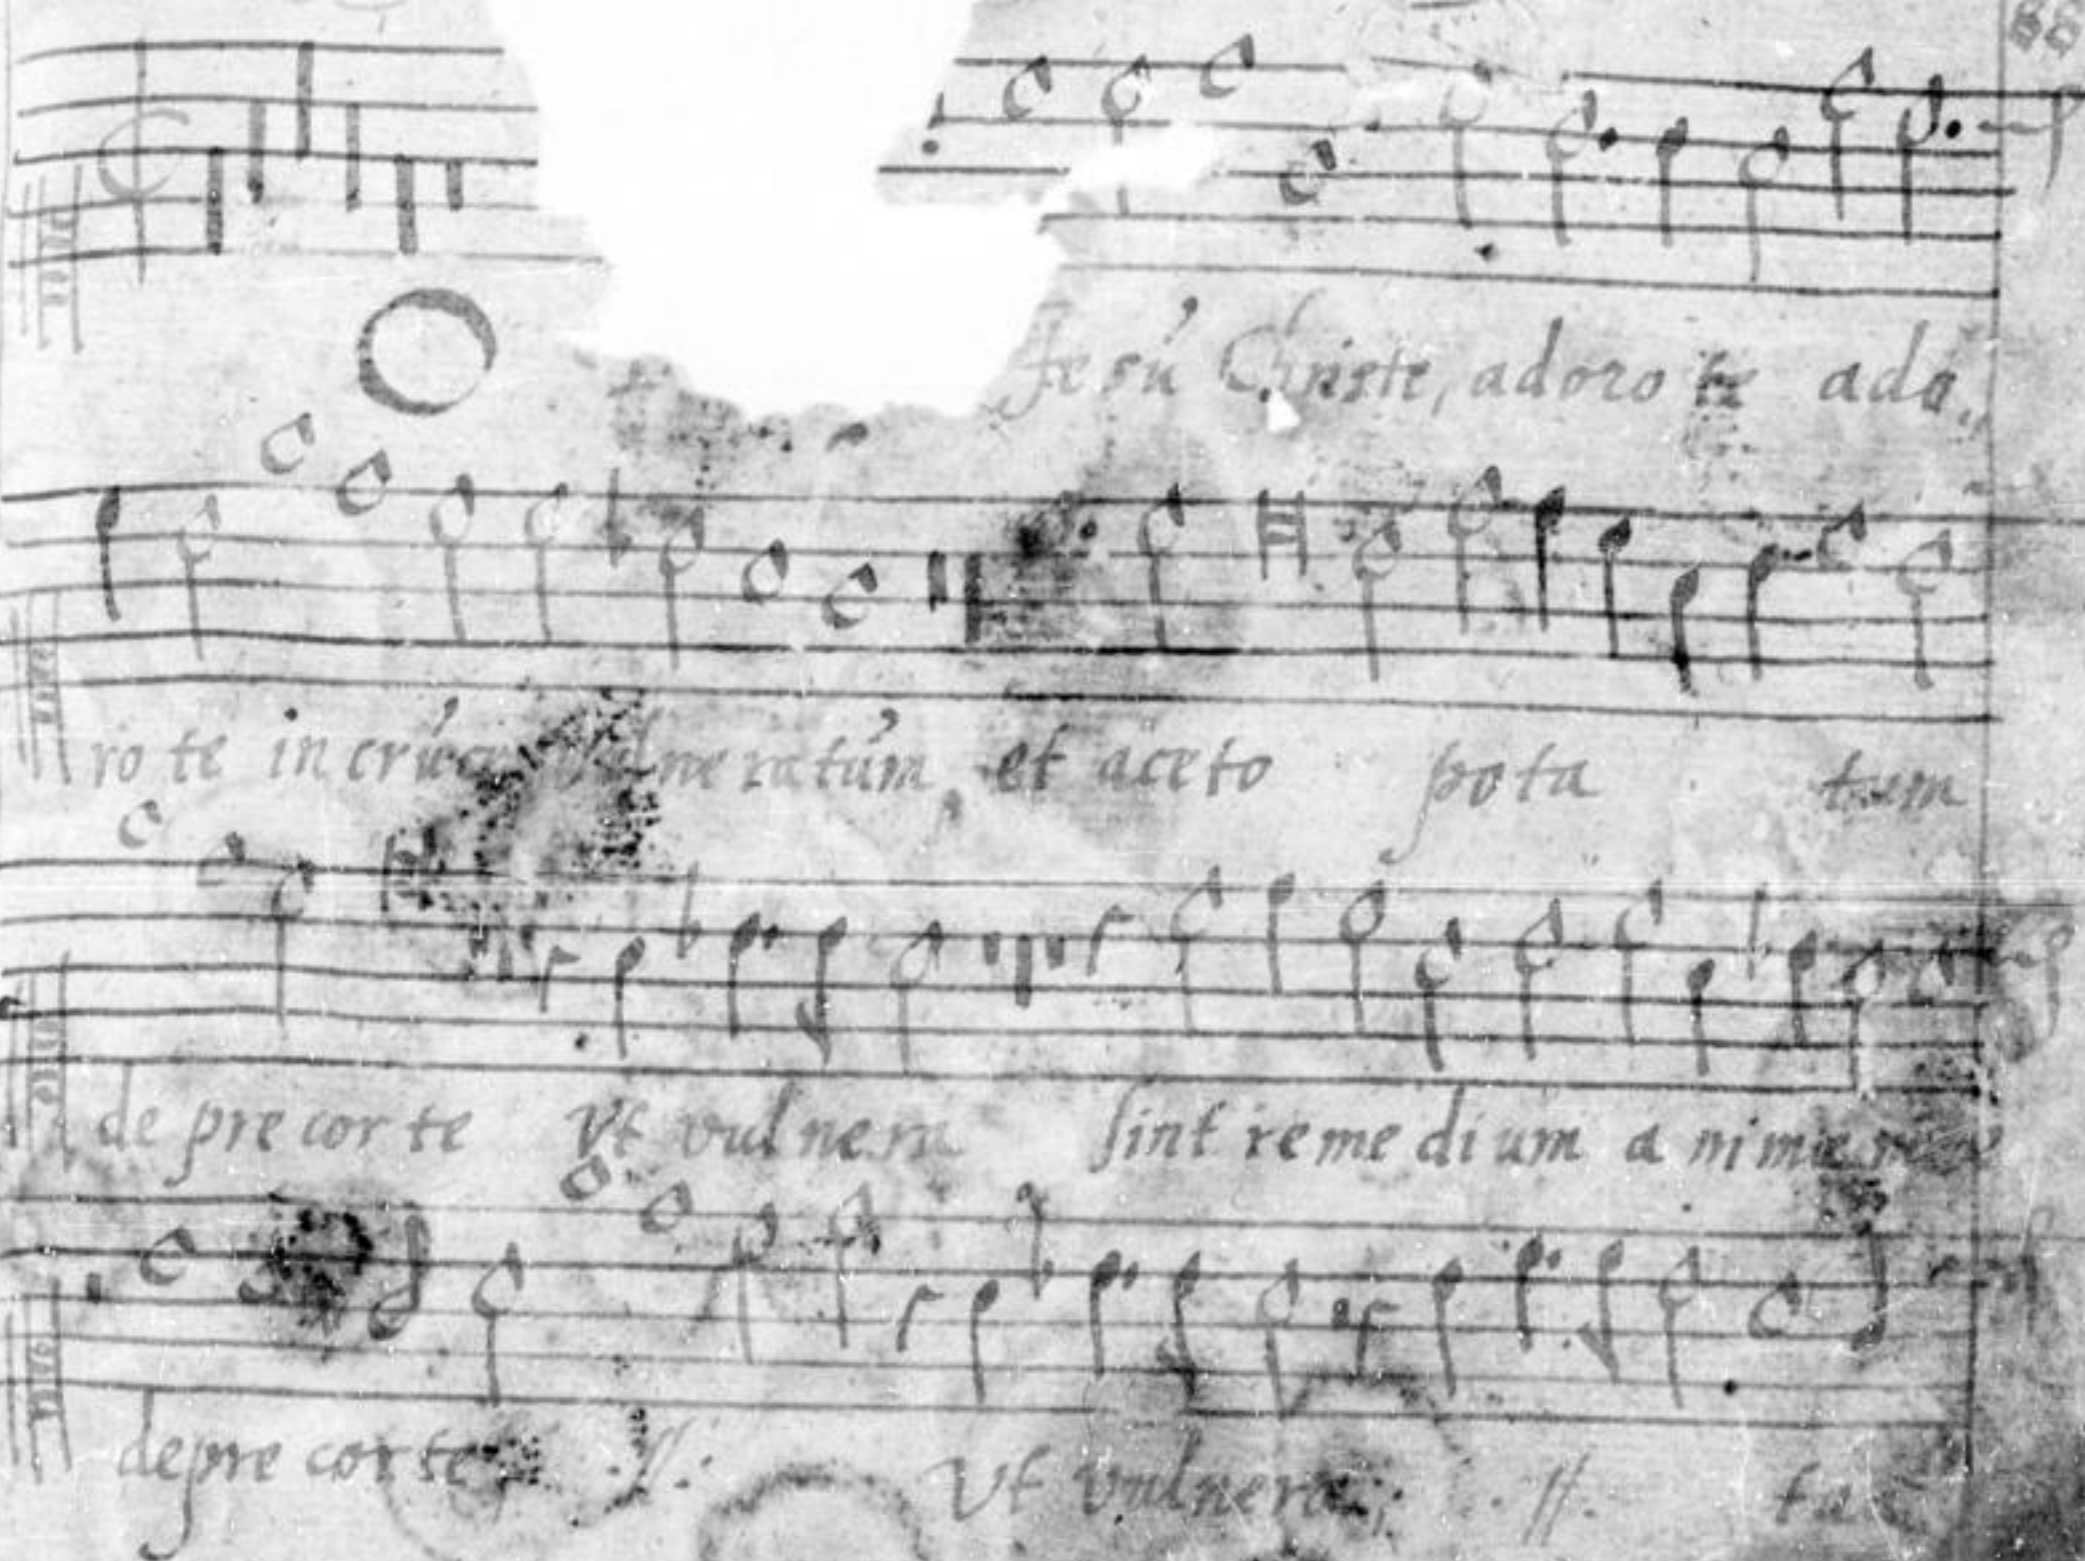 O Jesu Christe, adoro te ado
ro te in cruce vulneratum, et aceto pota tum
de pre cor te Vt vul ne ra sint re me di um a ni mae
depre cor te :||: Vt vulnera .||. tu